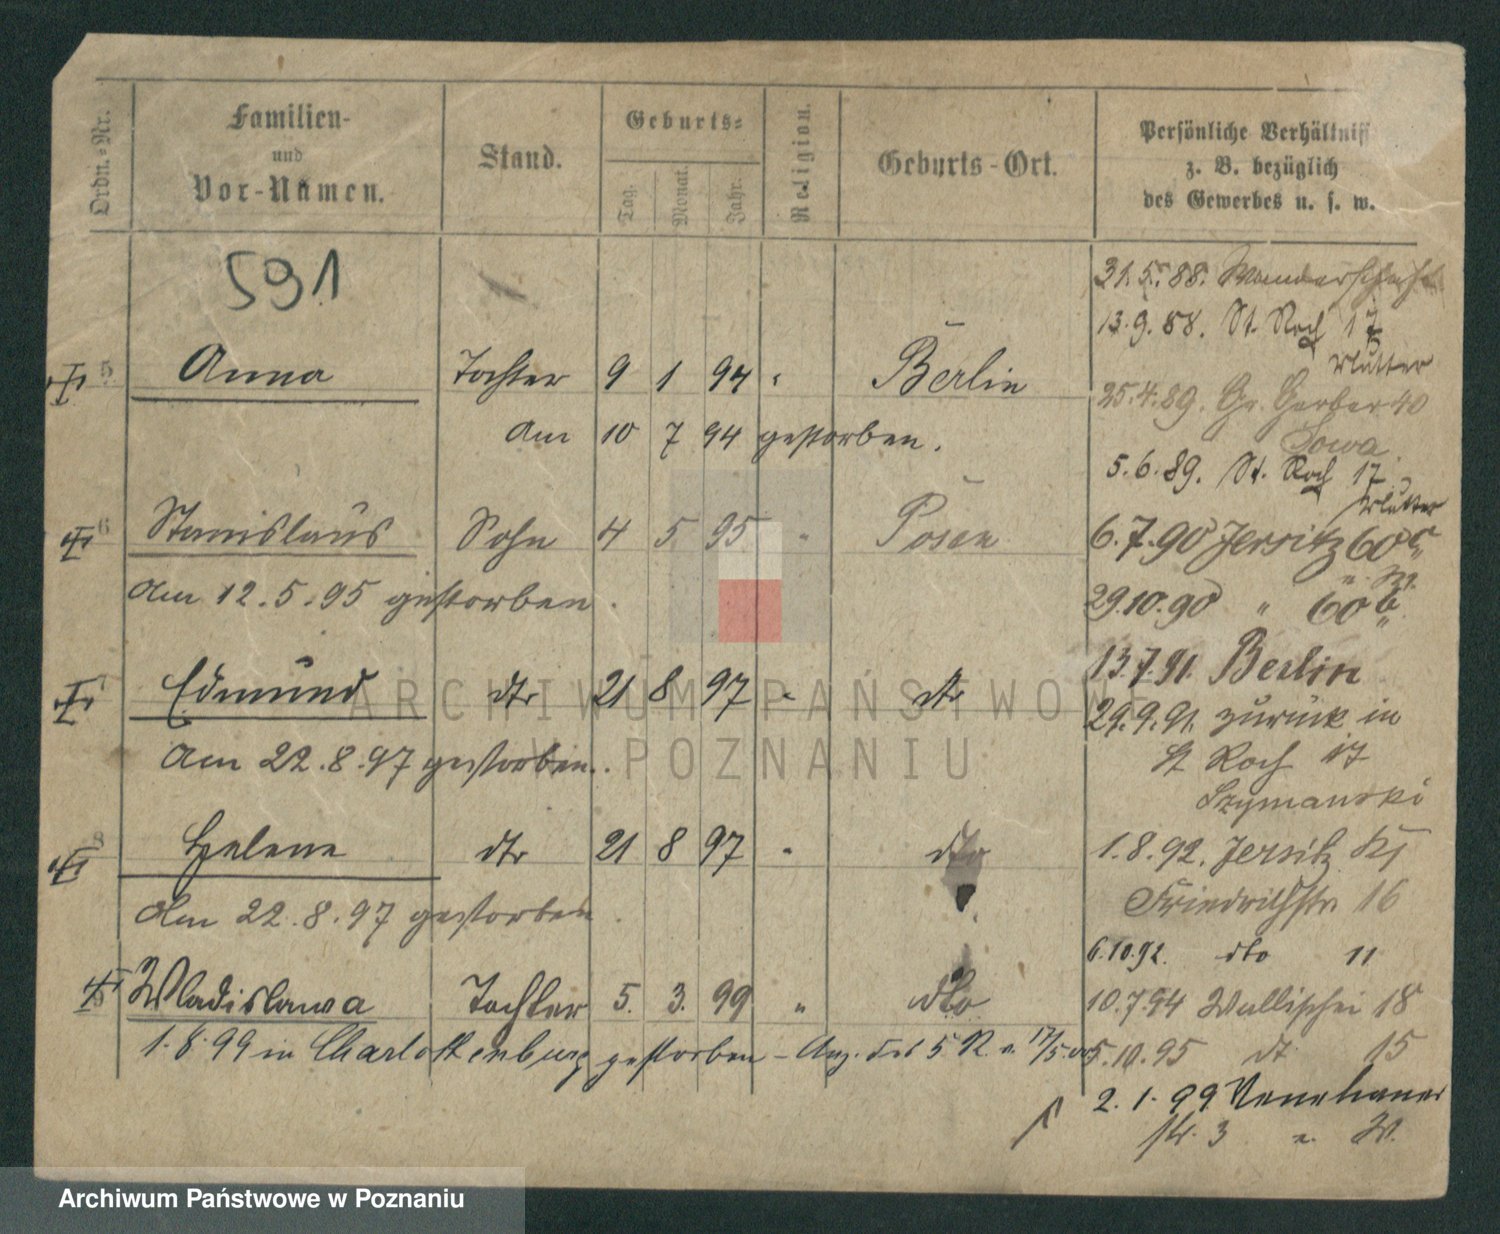 Ordn.-Nr.
Familien-
und
Vor-Namen.
Stand.
Geburts-
Tag.
Monat.
Jahr.
Religion.
Geburts-Ort.
Persönliche Verhältniss
z. B. bezüglich
des Gewerbes u. s. w.
591
5 Anna Tochter 9 1 94 " Berlin
Am 10 7 94 gestorben.
6 Stanislaus Sohn 4 5 95 " Posen
Am 12.5.95 gestorben.
7 Edmund dto 21 8 97 " dto
Am 22.8.97 gestorben.
8 Helene dto 21 8 97 " dto
Am 22.8.97 gestorben.
Wladislawa Tochter 5. 3. 99 " dto
1.8.99 in Charlottenburg gestorben - Anz. des 5 R. v. 17/5.00
31.5.88. Wanderschaft
13.9.88. St. Roch 17
Mutter
25.4.89. Gr. Gerber 40
Sowa.
5.6.89. St. Roch 17
Mutter
6.7.90 Jersitz 60
29.10.90 " 60b
13.7.91. Berlin
29.9.91. zurück in
St Roch 17
Szymanski
1.8.92. Jersitz
Friedrichstr. 16
6.10.92. dto 11
10.7.94 Wallischei 18
5.10.95 dt 15
2.1.99
str. 3 W.
ARCHIWUM PAŃSTWOWE
W POZNANIU
Archiwum Państwowe w Poznaniu